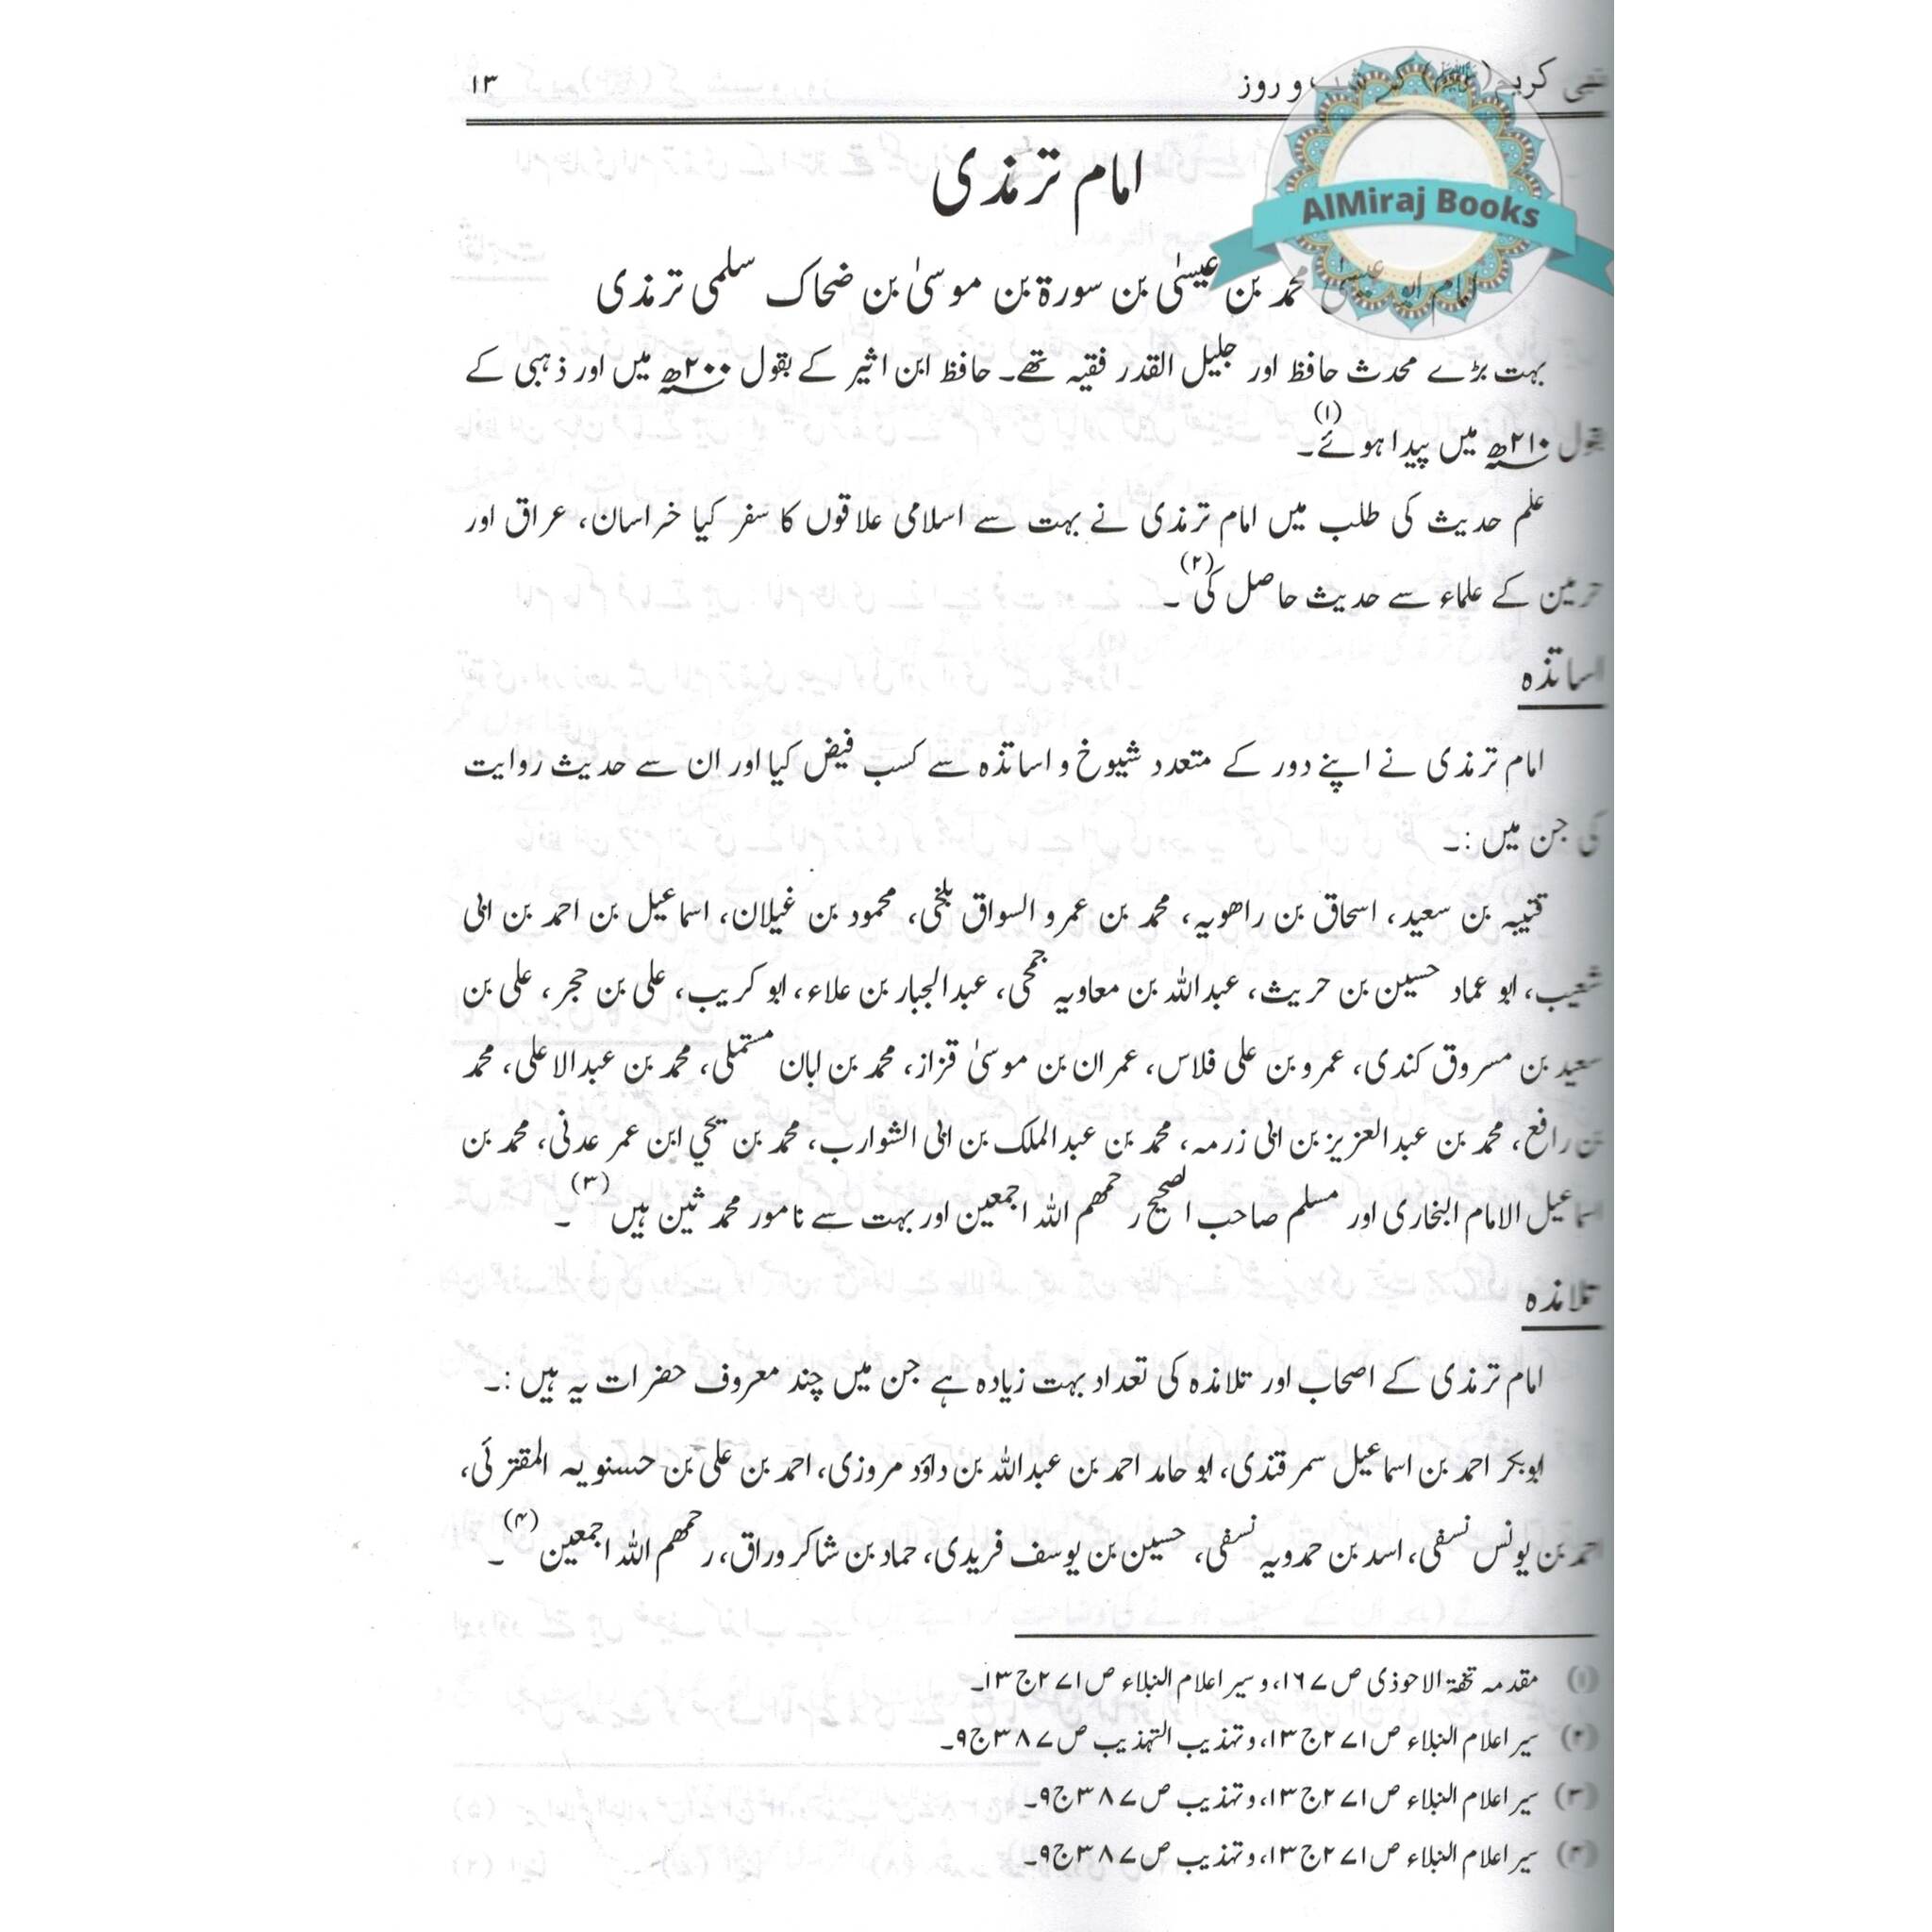 نبی کریم (ﷺ) کے شب و روز ۱۳
AlMiraj Books
امام ترمذی
امام ابو عیسیٰ محمد بن عیسیٰ بن سورۃ بن موسیٰ بن ضحاک سلمی ترمذی
بہت بڑے محدث حافظ اور جلیل القدر فقیہ تھے۔ حافظ ابن اثیر کے بقول ۲۰۰ھ میں اور ذہبی کے
بقول ۲۱۰ھ میں پیدا ہوئے۔(۱)
علم حدیث کی طلب میں امام ترمذی نے بہت سے اسلامی علاقوں کا سفر کیا خراسان، عراق اور
حرمین کے علماء سے حدیث حاصل کی(۲)۔
اساتذہ
امام ترمذی نے اپنے دور کے متعدد شیوخ و اساتذہ سے کسب فیض کیا اور ان سے حدیث روایت
کی جن میں :۔
قتیبہ بن سعید، اسحاق بن راھویہ، محمد بن عمرو السواق بلخی، محمود بن غیلان، اسماعیل بن احمد بن ابی
شعیب، ابو عماد حسین بن حریث، عبداللہ بن معاویہ جمحی، عبدالجبار بن علاء، ابو کریب، علی بن حجر، علی بن
سعید بن مسروق کندی، عمرو بن علی فلاس، عمران بن موسیٰ قزاز، محمد بن ابان مستملی، محمد بن عبدالاعلی، محمد
بن رافع، محمد بن عبدالعزیز بن ابی زرمہ، محمد بن عبدالملک بن ابی الشوارب، محمد بن یحیٰ ابن عمر عدنی، محمد بن
اسماعیل الامام البخاری اور مسلم صاحب الصحیح رحمھم اللہ اجمعین اور بہت سے نامور محمد ثین ہیں(۳)۔
تلامذہ
امام ترمذی کے اصحاب اور تلامذہ کی تعداد بہت زیادہ ہے جن میں چند معروف حضرات یہ ہیں :۔
ابوبکر احمد بن اسماعیل سمرقندی، ابو حامد احمد بن عبداللہ بن داؤد مروزی، احمد بن علی بن حسنویہ المقترئی،
احمد بن یونس نسفی، اسد بن حمدویہ نسفی، حسین بن یوسف فریدی، حماد بن شاکر وراق، رحمھم اللہ اجمعین(۴)۔
(۱) مقدمہ تحفۃ الاحوذی ص ۱۶۷، و سیر اعلام النبلاء ص ۲۷۱ ج ۱۳۔
(۲) سیر اعلام النبلاء ص ۲۷۱ ج ۱۳، و تہذیب التہذیب ص ۳۸۷ ج ۹۔
(۳) سیر اعلام النبلاء ص ۲۷۱ ج ۱۳، و تہذیب ص ۳۸۷ ج ۹۔
(۴) سیر اعلام النبلاء ص ۲۷۱ ج ۱۳، و تہذیب ص ۳۸۷ ج ۹۔